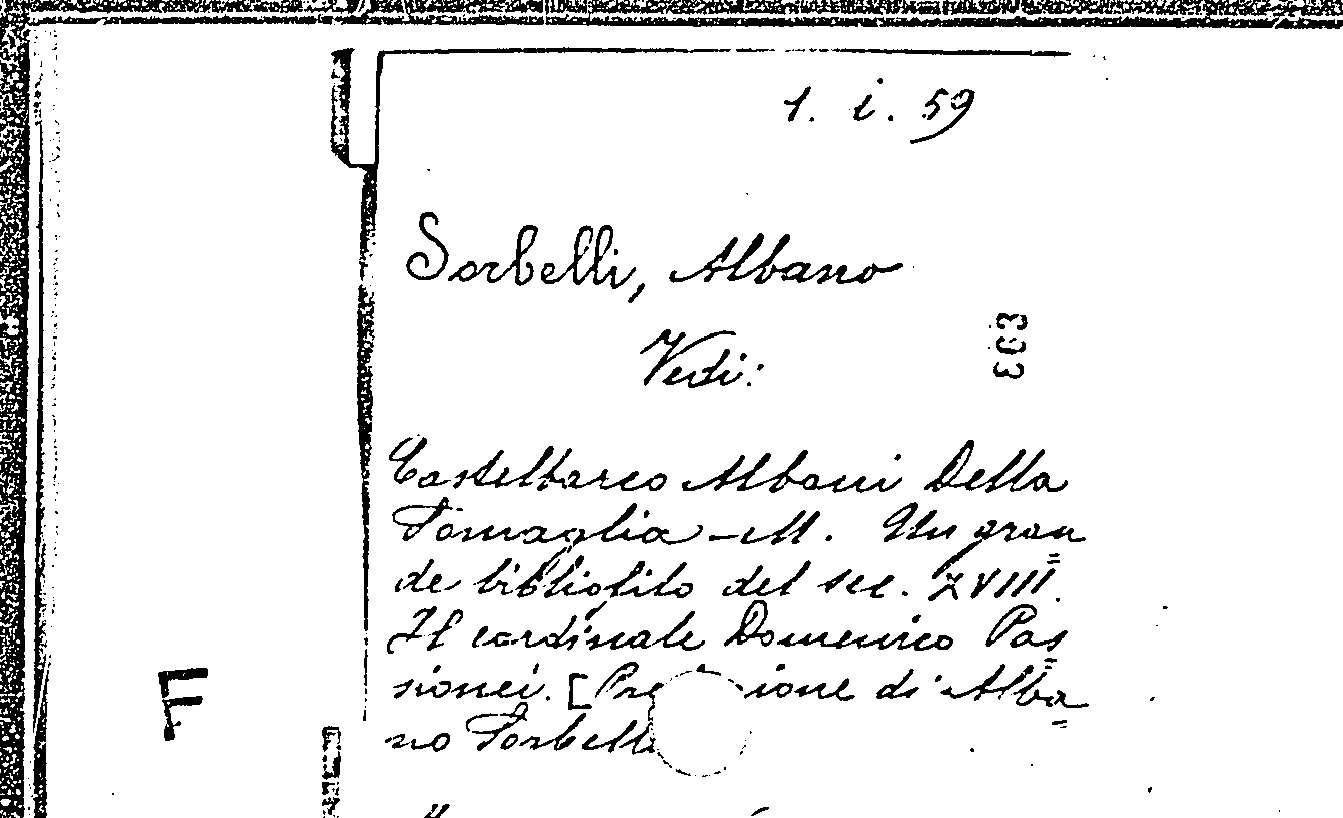 1. i. 59
Sorbelli, Albano
Vedi:
303
Castelbarco Albani Della
Somaglia - M. Un gran=
de bibliofilo del sec. XVIII.
Il cardinale Domenico Pas=
sionei. [ di Alba=
no
F